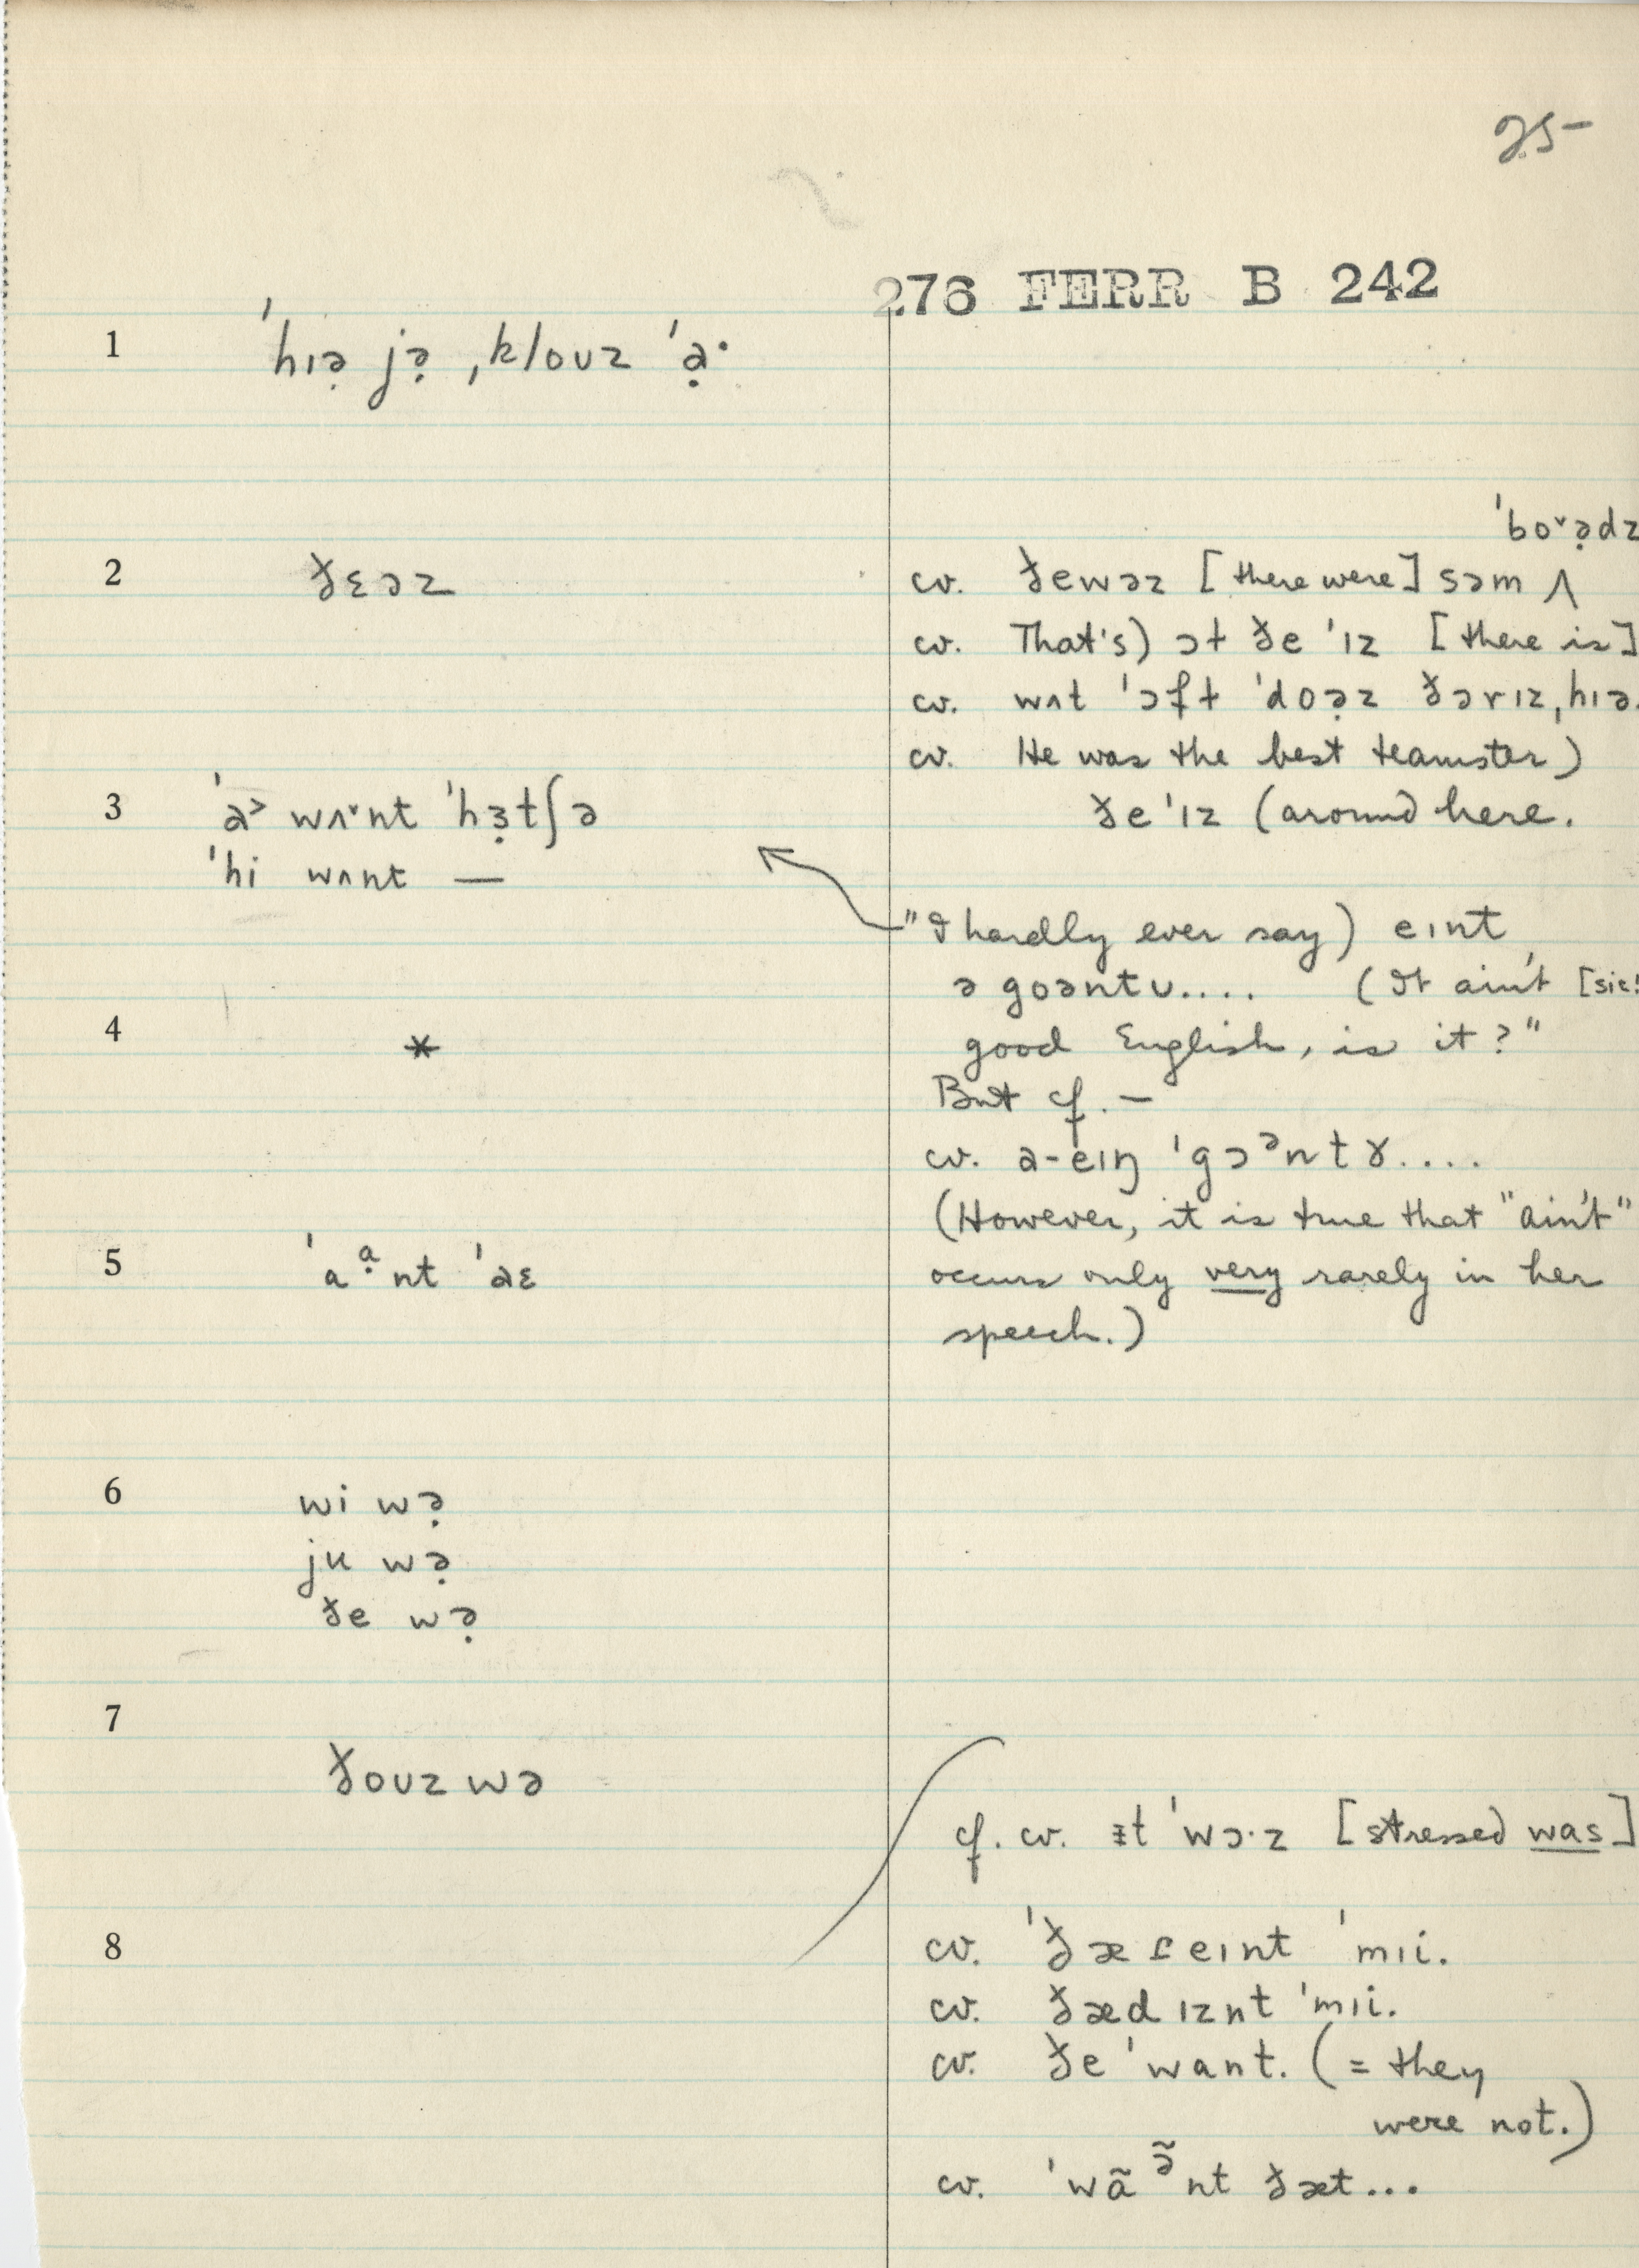 25-
276 FERR B 242
1 ˈhɪə̣ jə̣ ˌkloʊz ˈạ·
ˈboˇə̣dz
2 ðɛəz
cv. ðewəz [there were] səm ʌ
cv. That's) ɔt ðe ˈɪz [there is]
cv. wʌt ˈɔft ˈdoə̣z ðərɪz, hɪə.
cv. He was the best teamster)
ðe ˈɪz (around here.
3 ˈa˃ wʌˇnt ˈhɜ̣tʃə
ˈhi wʌnt —
"I hardly ever say) eɪnt
ə goəntʊ.... (It ain't [sic!
good English, is it?"
4 *
But cf. —
cv. a-eɪŋ ˈgɔᵊntɤ....
(However, it is true that "ain't"
5 ˈaᵃ̣nt ˈaɛ
occurs only very rarely in her
speech.)
6 wi wə̣
ju wə̣
ðe wə̣
7
ðoʊz wə
cf. cv. ɪt ˈwɔ·z [stressed was]
8
cv. ˈðæɾeɪnt ˈmɪi.
cv. ðæd ɪznt ˈmɪi.
cv. ðe ˈwant. (= they
were not.)
cv. ˈwãᵊ̃nt ðæt...